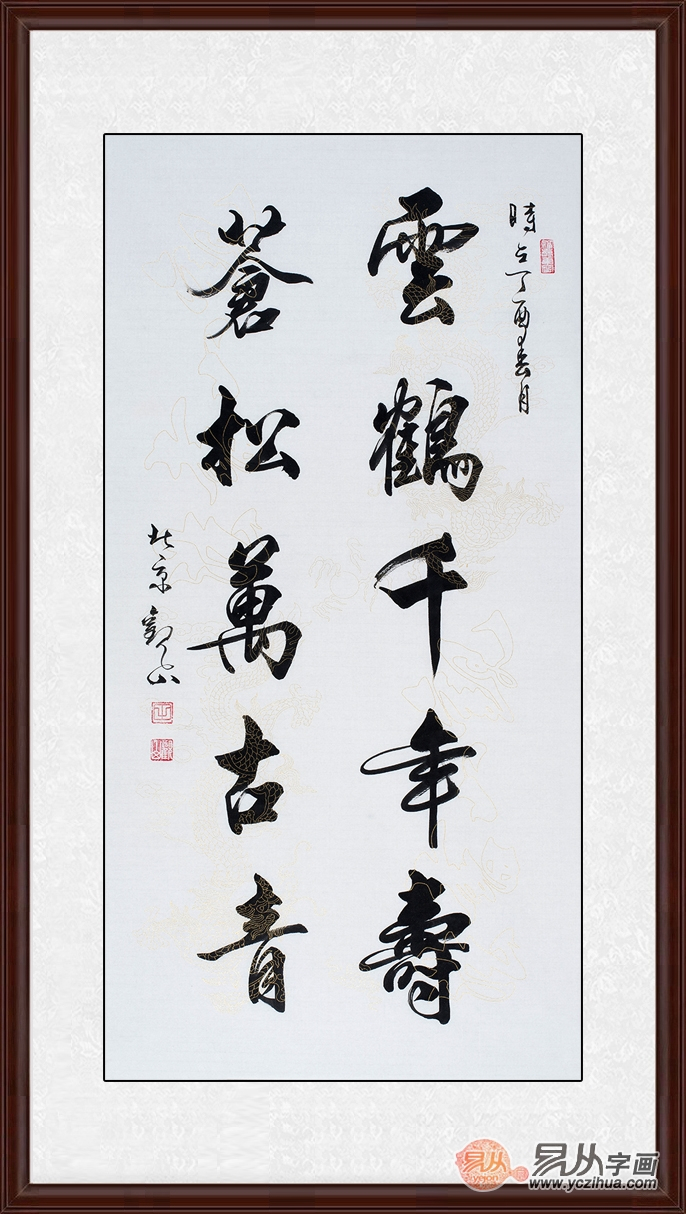 時在丁酉春月
雲鶴千年壽
蒼松萬古青
北京 觀山
易从字画
www.yczihua.com